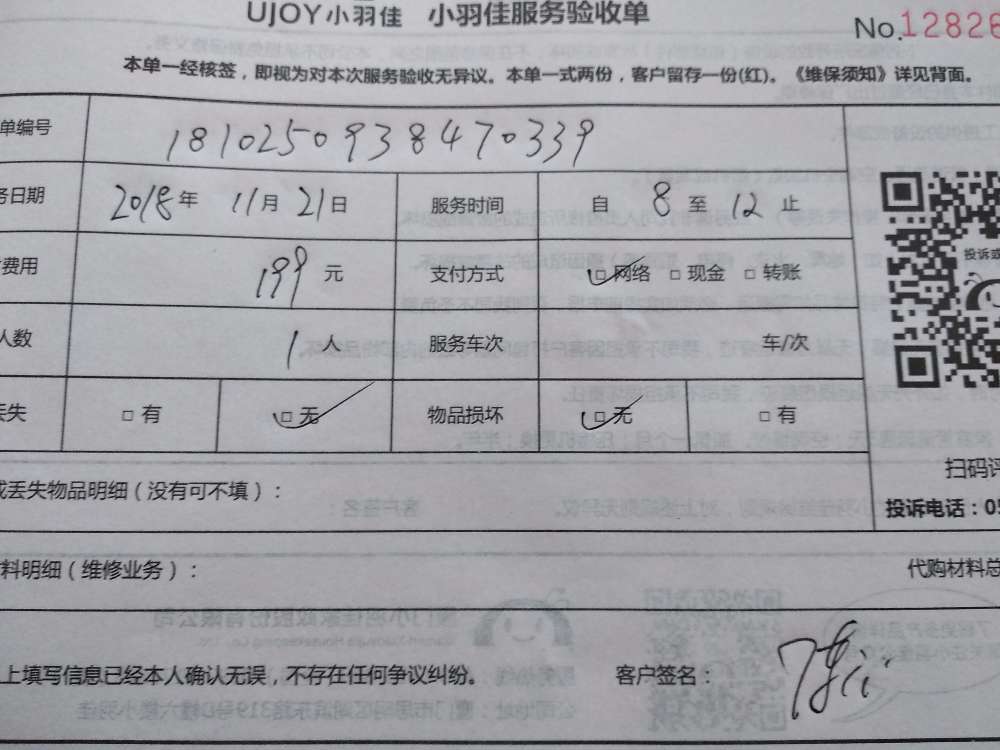 UJOY小羽佳 小羽佳服务验收单
No.12826
本单一经核签，即视为对本次服务验收无异议。本单一式两份，客户留存一份(红)。《维保须知》详见背面。
单编号 1810250938470339
务日期 2018年 11月 21日 服务时间 自 8 至 12 止
费用 199 元 支付方式 □网络 □现金 □转账
人数 1 人 服务车次 车/次
丢失 □有 □无 物品损坏 □无 □有
投诉或
扫码评
或丢失物品明细（没有可不填）：
投诉电话：05
料明细（维修业务）： 代购材料总
上填写信息已经本人确认无误，不存在任何争议纠纷。 客户签名：